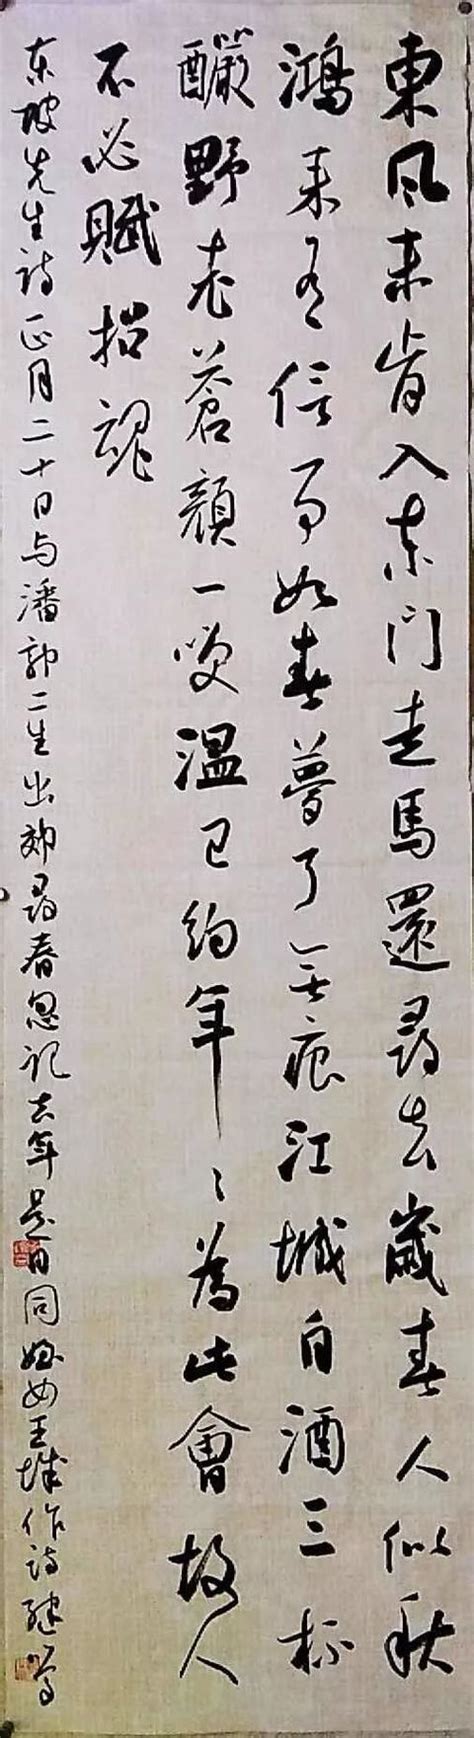 東風未肯入東門走馬還尋去歲春人似秋
鴻來有信事如春夢了無痕江城白酒三杯
釅野老蒼顏一笑溫已約年〻為此會故人
不必賦招魂
东坡先生詩正月二十日与潘郭二生出郊尋春忽记去年是日同至女王城作詩